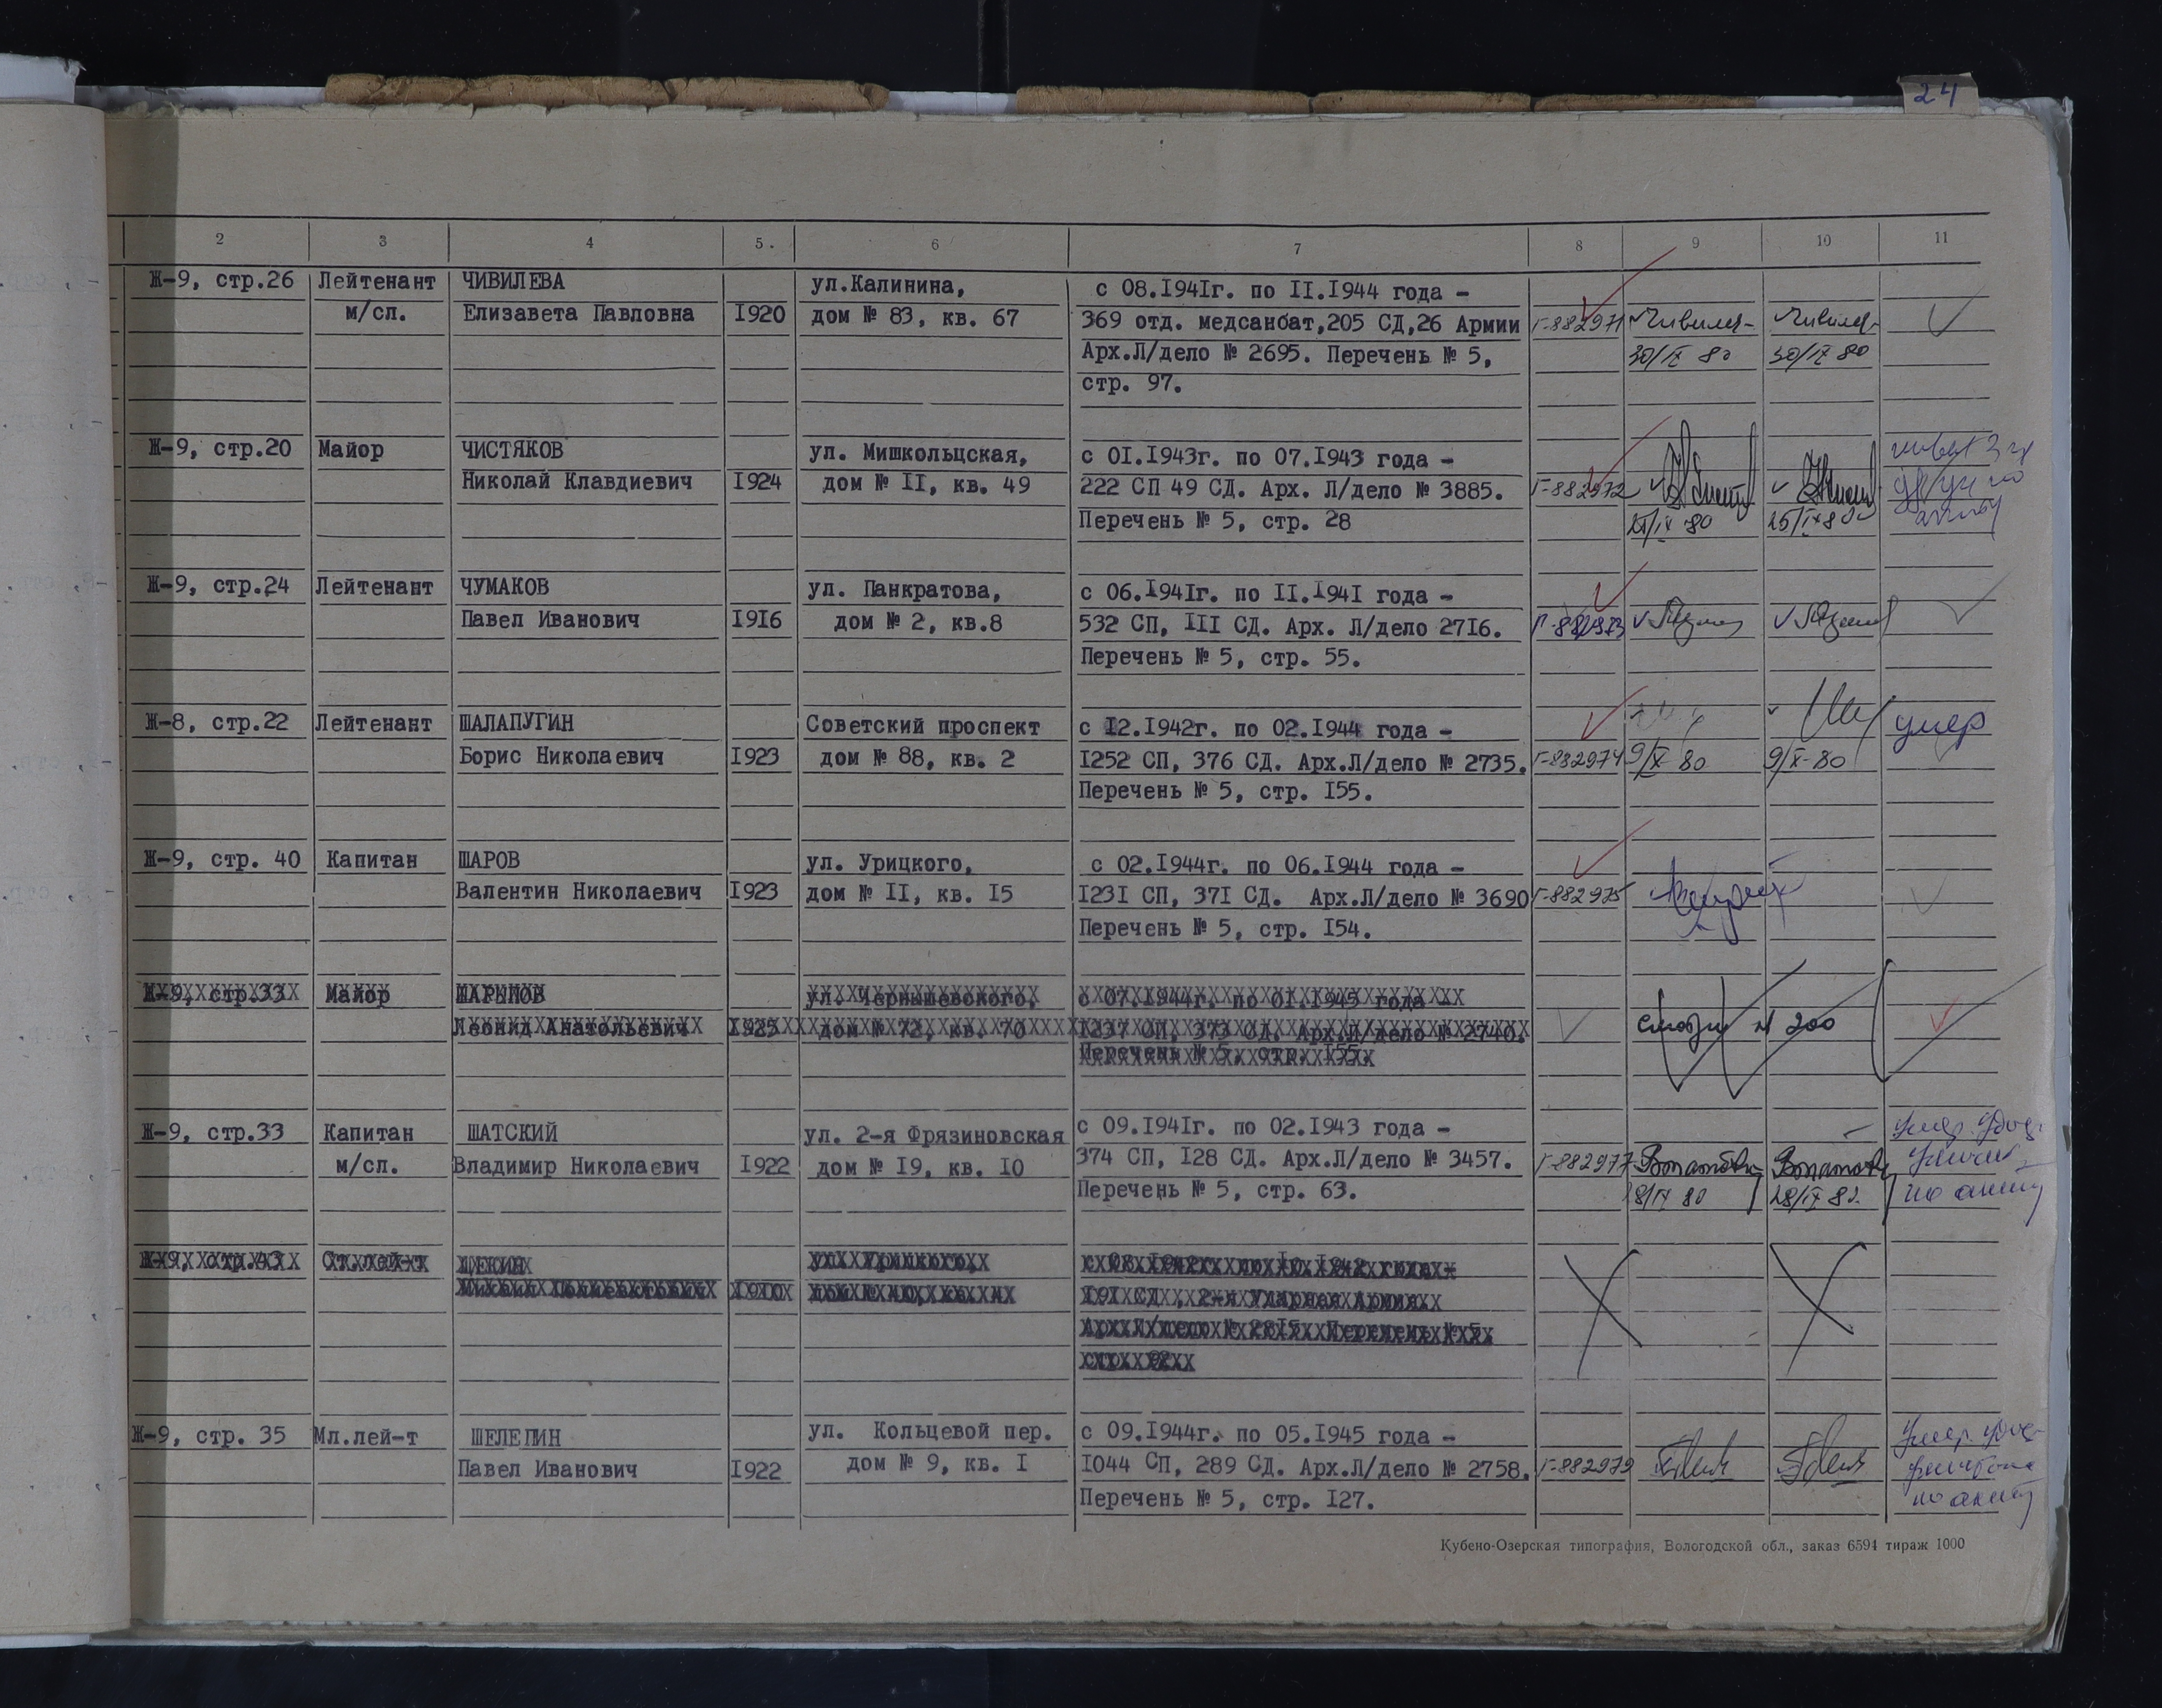 24
2 3 4 5. 6 7 8 9 10 11
Ж-9, стр.26 Лейтенант ЧИВИЛЕВА ул.Калинина, с 08.I94Iг. по II.I944 года -
м/сл. Елизавета Павловна I920 дом № 83, кв. 67 369 отд. медсанбат,205 СД,26 Армии Г-882971 Чивилев- Чивилев-
Арх.Л/дело № 2695. Перечень № 5, 30/IX 80 30/IX 80
стр. 97.
Ж-9, стр.20 Майор ЧИСТЯКОВ ул. Мишкольцская, с OI.I943г. по 07.I943 года -
Николай Клавдиевич I924 дом № II, кв. 49 222 СП 49 СД. Арх. Л/дело № 3885. Г-882972
Перечень № 5, стр. 28 25/IX 80 25/IX 80
Ж-9, стр.24 Лейтенант ЧУМАКОВ ул. Панкратова, с 06.I94Iг. по II.I94I года -
Павел Иванович I9I6 дом № 2, кв.8 532 СП, III СД. Арх. Л/дело 27I6. Г-882973
Перечень № 5, стр. 55.
Ж-8, стр.22 Лейтенант ШАЛАПУГИН Советский проспект с I2.I942г. по 02.I944 года - умер
Борис Николаевич I923 дом № 88, кв. 2 I252 СП, 376 СД. Арх.Л/дело № 2735. Г-882974 9/X 80 9/X-80
Перечень № 5, стр. I55.
Ж-9, стр. 40 Капитан ШАРОВ ул. Урицкого, с 02.I944г. по 06.I944 года -
Валентин Николаевич I923 дом № II, кв. I5 I23I СП, 37I СД. Арх.Л/дело № 3690 Г-882975
Перечень № 5, стр. I54.
Ж-9, стр.33 Майор ШАРЫПОВ ул. Чернышевского, с 07.I944г. по OI.I945 года -
Леонид Анатольевич I925 дом № 72, кв. 70 I237 СП, 373 СД. Арх.Л/дело № 2740. смотри № 200
Перечень № 5, стр. I55.
Ж-9, стр.33 Капитан ШАТСКИЙ ул. 2-я Фрязиновская с 09.I94Iг. по 02.I943 года - умер. удос.
м/сл. Владимир Николаевич I922 дом № I9, кв. IO 374 СП, I28 СД. Арх.Л/дело № 3457. Г-882977
Перечень № 5, стр. 63. 28/IX 80 28/IX 80. по акту
Ж-9, стр.43 Ст.лей-т
I9I СД, 2-я Ударная Армия.
Ж-9, стр. 35 Мл.лей-т ШЕЛЕПИН ул. Кольцевой пер. с 09.I944г. по 05.I945 года - умер. удос-
Павел Иванович I922 дом № 9, кв. I I044 СП, 289 СД. Арх.Л/дело № 2758. Г-882979
Перечень № 5, стр. I27. по акту
Кубено-Озерская типография, Вологодской обл., заказ 6594 тираж 1000